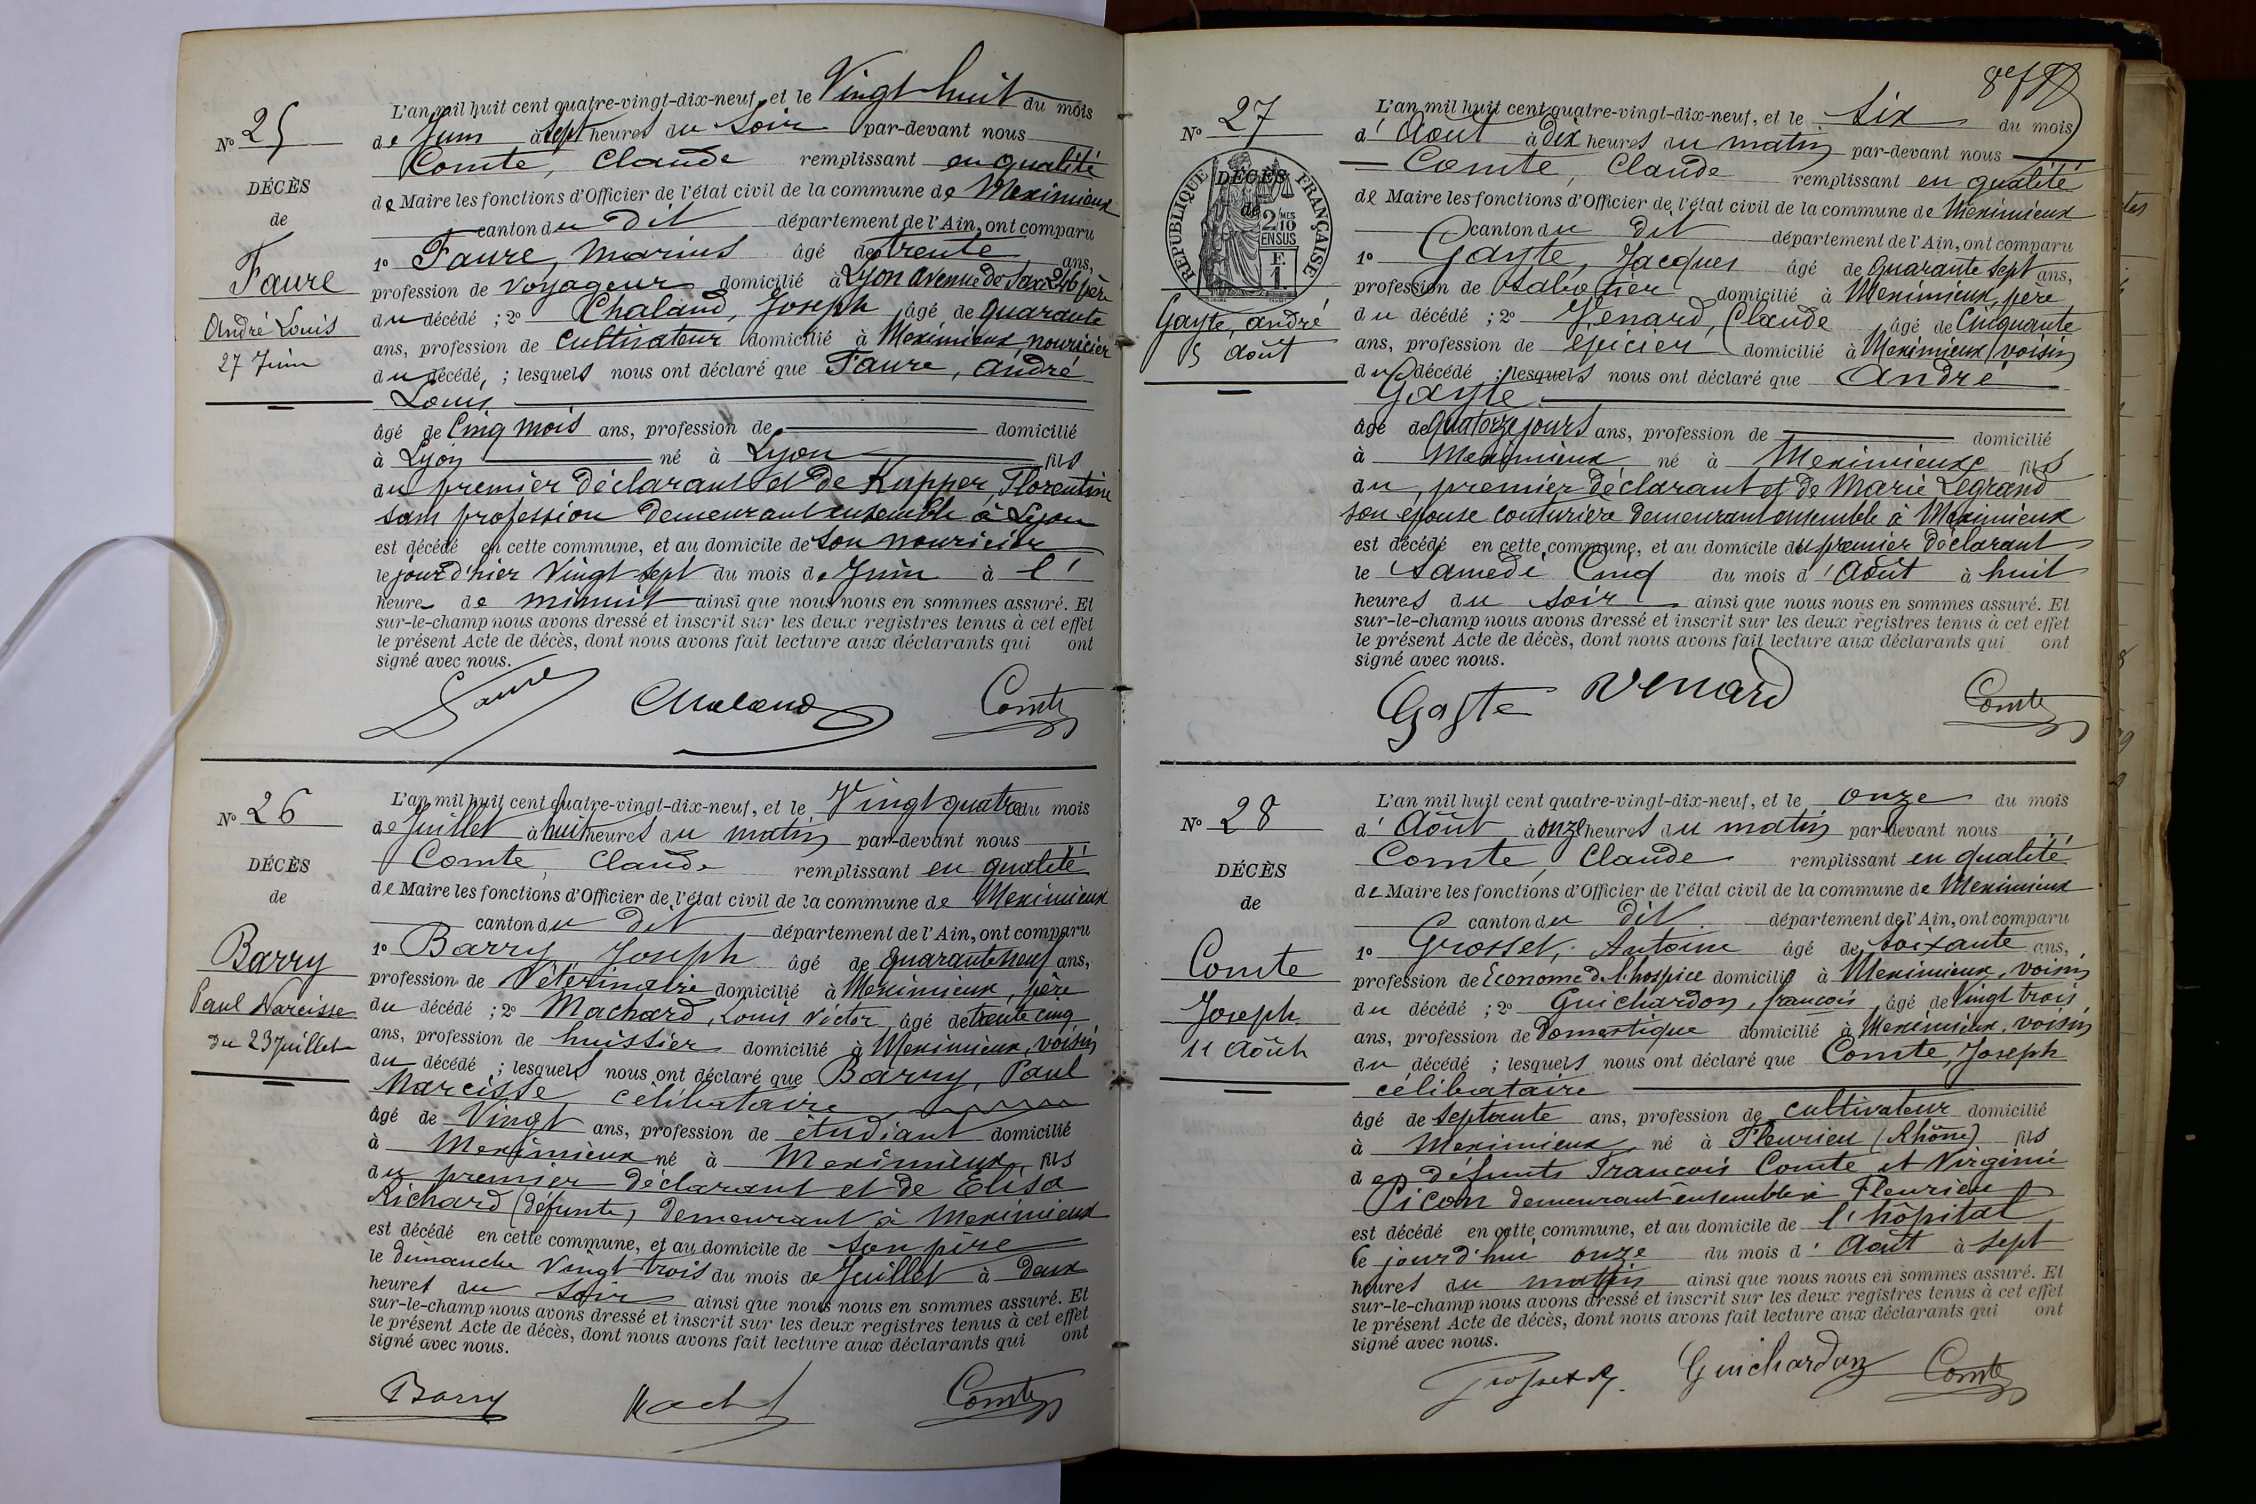 N° 25
DÉCÈS
de
Faure
André Louis
27 Juin
L'an mil huit cent quatre-vingt-dix-neuf, et le Vingt huit du mois
de Juin à sept heures du soir par-devant nous
Comte, Claude remplissant en qualité
de Maire les fonctions d'Officier de l'état civil de la commune de Meximieux
canton du dit département de l'Ain, ont comparu
1° Faure, Marius âgé de trente ans,
profession de voyageur domicilié à Lyon avenue de Saxe 246 père
du décédé ; 2° Chaland, Joseph âgé de quarante
ans, profession de cultivateur domicilié à Meximieux, nouricier
du décédé, ; lesquels nous ont déclaré que Faure, André
Louis
âgé de Cinq mois ans, profession de domicilié
à Lyon né à Lyon fils
du premier déclarant et de Kupper, Florentine
sans profession demeurant ensemble à Lyon
est décédé en cette commune, et au domicile de son nouricier
le jour d'hier Vingt sept du mois de Juin à l'
heure de minuit ainsi que nous nous en sommes assuré. Et
sur-le-champ nous avons dressé et inscrit sur les deux registres tenus à cet effet
le présent Acte de décès, dont nous avons fait lecture aux déclarants qui ont
signé avec nous.
Faure Chaland Comte
N° 26
DÉCÈS
de
Barry
Paul Narcisse
du 23 Juillet
L'an mil huit cent quatre-vingt-dix-neuf, et le Vingt quatre du mois
de Juillet à huit heures du matin par-devant nous
Comte, Claude remplissant en qualité
de Maire les fonctions d'Officier de l'état civil de la commune de Meximieux
canton du dit département de l'Ain, ont comparu
1° Barry Joseph âgé de quarante neuf ans,
profession de Vétérinaire domicilié à Meximieux, père
du décédé ; 2° Machard, Louis Victor âgé de trente cinq
ans, profession de huissier domicilié à Meximieux, voisin
du décédé ; lesquels nous ont déclaré que Barry, Paul
Narcisse célibataire
âgé de Vingt ans, profession de étudiant domicilié
à Meximieux né à Meximieux, fils
du premier déclarant et de Elisa
Richard (défunte) demeurant à Meximieux
est décédé en cette commune, et au domicile de son père
le dimanche Vingt trois du mois de Juillet à deux
heures du soir ainsi que nous nous en sommes assuré. Et
sur-le-champ nous avons dressé et inscrit sur les deux registres tenus à cet effet
le présent Acte de décès, dont nous avons fait lecture aux déclarants qui ont
signé avec nous.
Barry Comte
8e f
N° 27
DÉCÈS
de
RÉPUBLIQUE FRANÇAISE
2/10 MES
EN SUS
F.
1.
Gayte, André
5 Août
L'an mil huit cent quatre-vingt-dix-neuf, et le six du mois
d'Août à dix heures du matin par-devant nous
Comte, Claude remplissant en qualité
de Maire les fonctions d'Officier de l'état civil de la commune de Meximieux
canton du dit département de l'Ain, ont comparu
1° Gayte, Jacques âgé de quarante sept ans,
profession de sabotier domicilié à Meximieux, père
du décédé ; 2° Venard, Claude âgé de Cinquante
ans, profession de épicier domicilié à Meximieux, voisin
du décédé ; lesquels nous ont déclaré que André
Gayte
âgé de quatorze jours ans, profession de domicilié
à Meximieux né à Meximieux fils
du premier déclarant et de Marie Legrand
son épouse couturière demeurant ensemble à Meximieux
est décédé en cette commune, et au domicile du premier déclarant
le Samedi Cinq du mois d'Août à huit
heures du soir ainsi que nous nous en sommes assuré. Et
sur-le-champ nous avons dressé et inscrit sur les deux registres tenus à cet effet
le présent Acte de décès, dont nous avons fait lecture aux déclarants qui ont
signé avec nous.
Gayte Venard Comte
N° 28
DÉCÈS
de
Comte
Joseph
11 Août
L'an mil huit cent quatre-vingt-dix-neuf, et le onze du mois
d'Août à onze heures du matin par-devant nous
Comte, Claude remplissant en qualité
de Maire les fonctions d'Officier de l'état civil de la commune de Meximieux
canton du dit département de l'Ain, ont comparu
1° Grosset, Antoine âgé de soixante ans,
profession de Econome de l'hospice domicilié à Meximieux, voisin
du décédé ; 2° Guichardon, françois âgé de Vingt trois
ans, profession de Domestique domicilié à Meximieux, voisin
du décédé ; lesquels nous ont déclaré que Comte, Joseph
célibataire
âgé de septante ans, profession de cultivateur domicilié
à Meximieux né à Fleurieu (Rhône) fils
de défunts François Comte et Virginie
Picon demeurant ensemble à Fleurieu
est décédé en cette commune, et au domicile de l'hôpital
le jourd'hui onze du mois d'Août à sept
heures du matin ainsi que nous nous en sommes assuré. Et
sur-le-champ nous avons dressé et inscrit sur les deux registres tenus à cet effet
le présent Acte de décès, dont nous avons fait lecture aux déclarants qui ont
signé avec nous.
Grosset A. Guichardon Comte